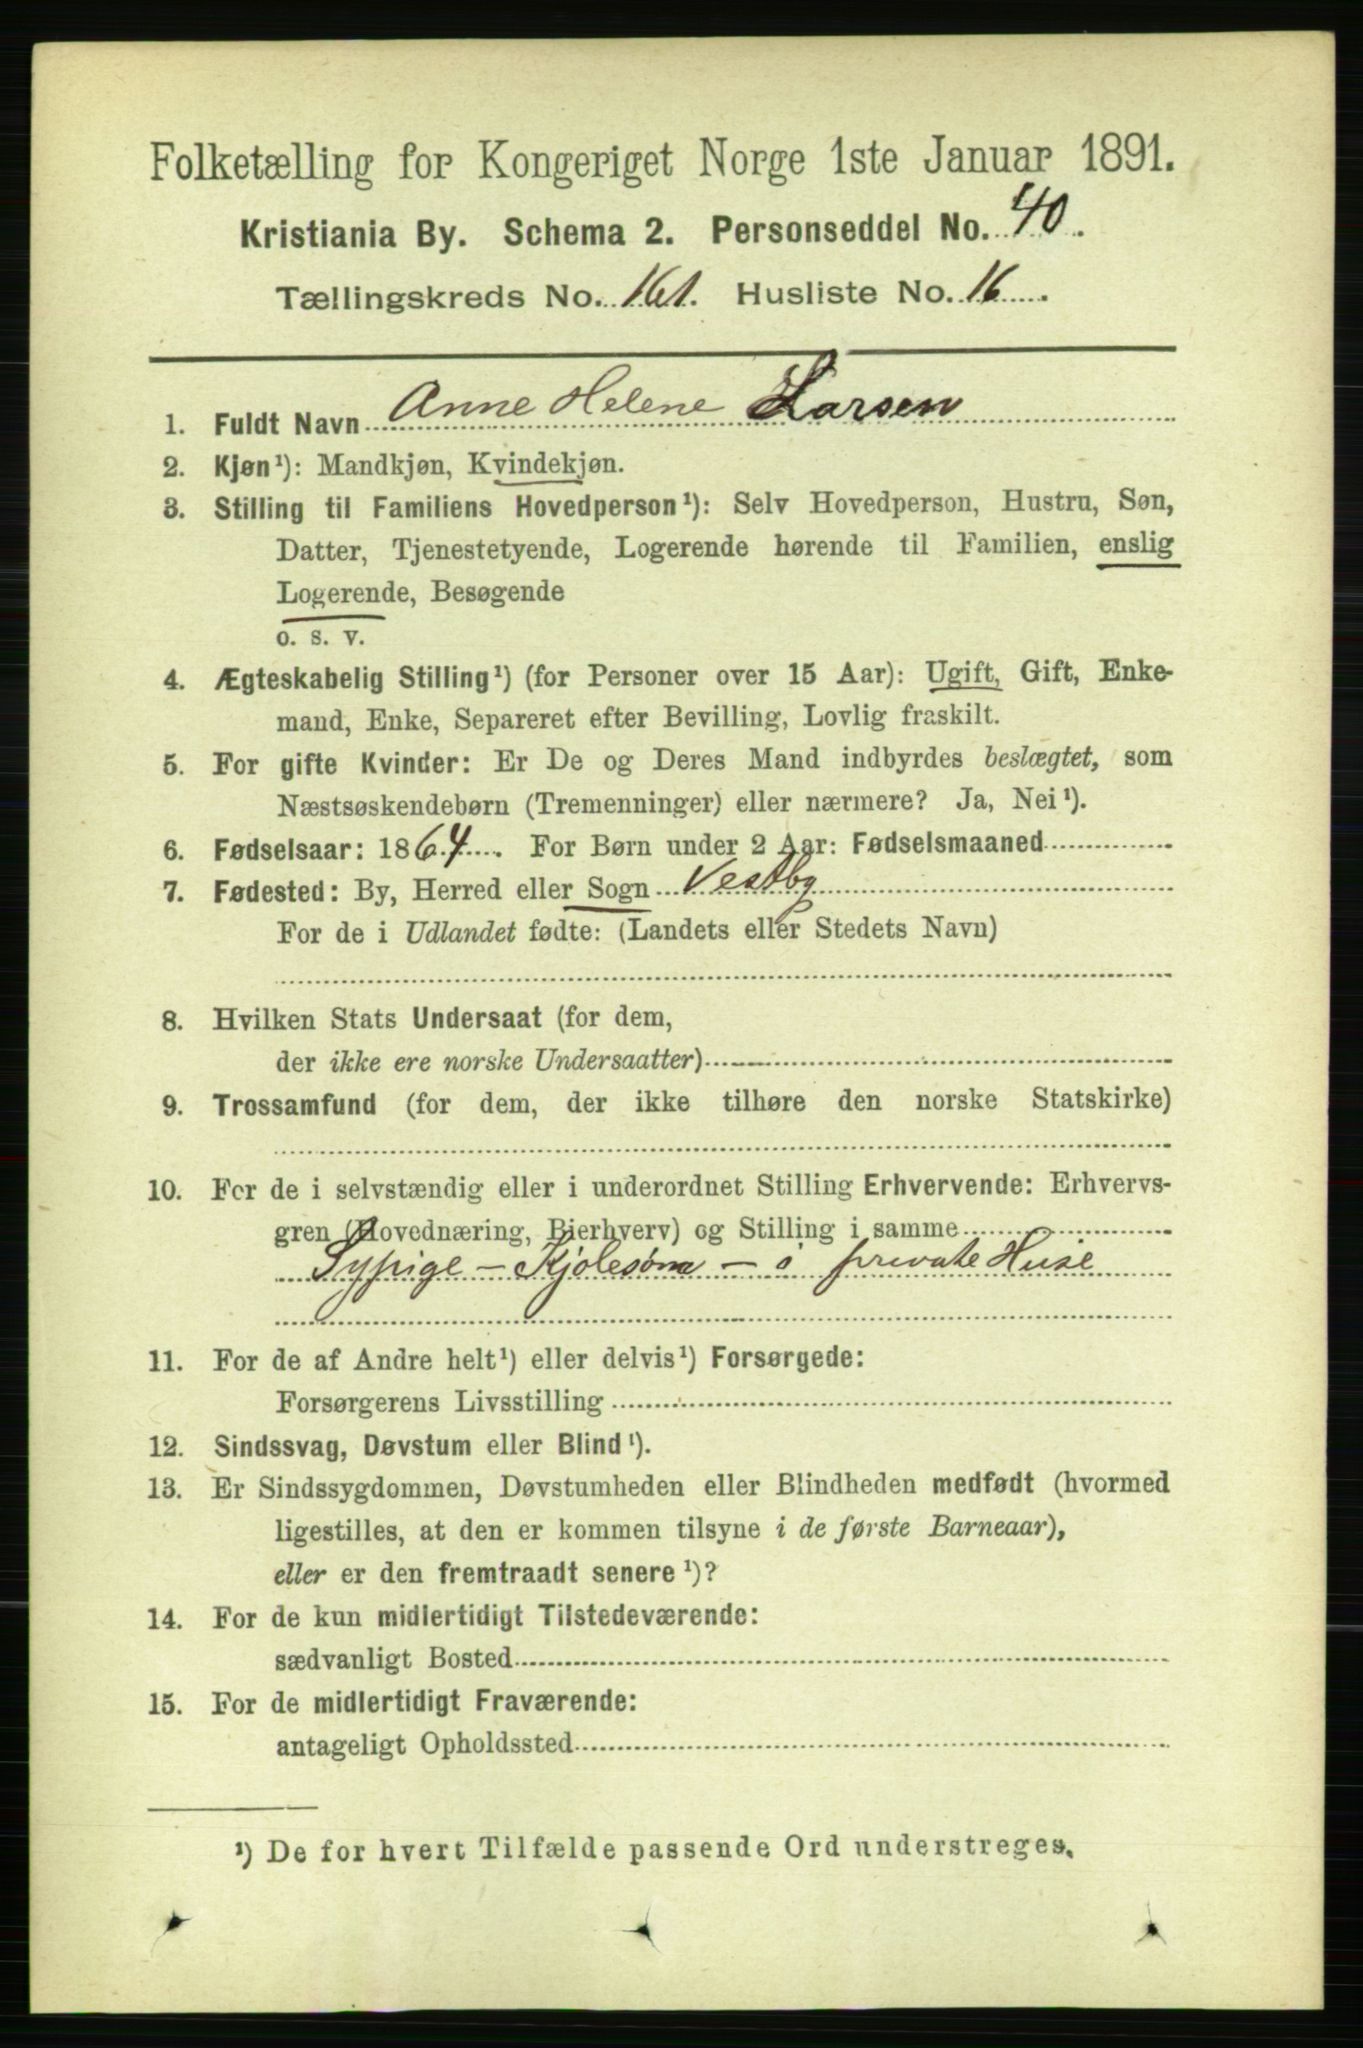 Folketælling for Kongeriget Norge 1ste Januar 1891.
Kristiania By. Schema 2. Personseddel No. 40.
Tællingskreds No. 161. Husliste No. 16.
1. Fuldt Navn Anne Helene Larsen
2. Kjøn¹): Mandkjøn, Kvindekjøn.
3. Stilling til Familiens Hovedperson¹): Selv Hovedperson, Hustru, Søn,
Datter, Tjenestetyende, Logerende hørende til Familien, enslig
Logerende, Besøgende
o. s. v.
4. Ægteskabelig Stilling¹) (for Personer over 15 Aar): Ugift, Gift, Enke-
mand, Enke, Separeret efter Bevilling, Lovlig fraskilt.
5. For gifte Kvinder: Er De og Deres Mand indbyrdes beslægtet, som
Næstsøskendebørn (Tremenninger) eller nærmere? Ja, Nei¹).
6. Fødselsaar: 1864. For Børn under 2 Aar: Fødselsmaaned
7. Fødested: By, Herred eller Sogn Vestby
For de i Udlandet fødte: (Landets eller Stedets Navn)
8. Hvilken Stats Undersaat (for dem,
der ikke ere norske Undersaatter)
9. Trossamfund (for dem, der ikke tilhøre den norske Statskirke)
10. For de i selvstændig eller i underordnet Stilling Erhvervende: Erhvervs-
gren (Hovednæring, Bierhverv) og Stilling i samme
Sypige – Kjolesøm – i private Huse
11. For de af Andre helt¹) eller delvis¹) Forsørgede:
Forsørgerens Livsstilling
12. Sindssvag, Døvstum eller Blind¹).
13. Er Sindssygdommen, Døvstumheden eller Blindheden medfødt (hvormed
ligestilles, at den er kommen tilsyne i de første Barneaar),
eller er den fremtraadt senere¹)?
14. For de kun midlertidigt Tilstedeværende:
sædvanligt Bosted
15. For de midlertidigt Fraværende:
antageligt Opholdssted
¹) De for hvert Tilfælde passende Ord understreges.